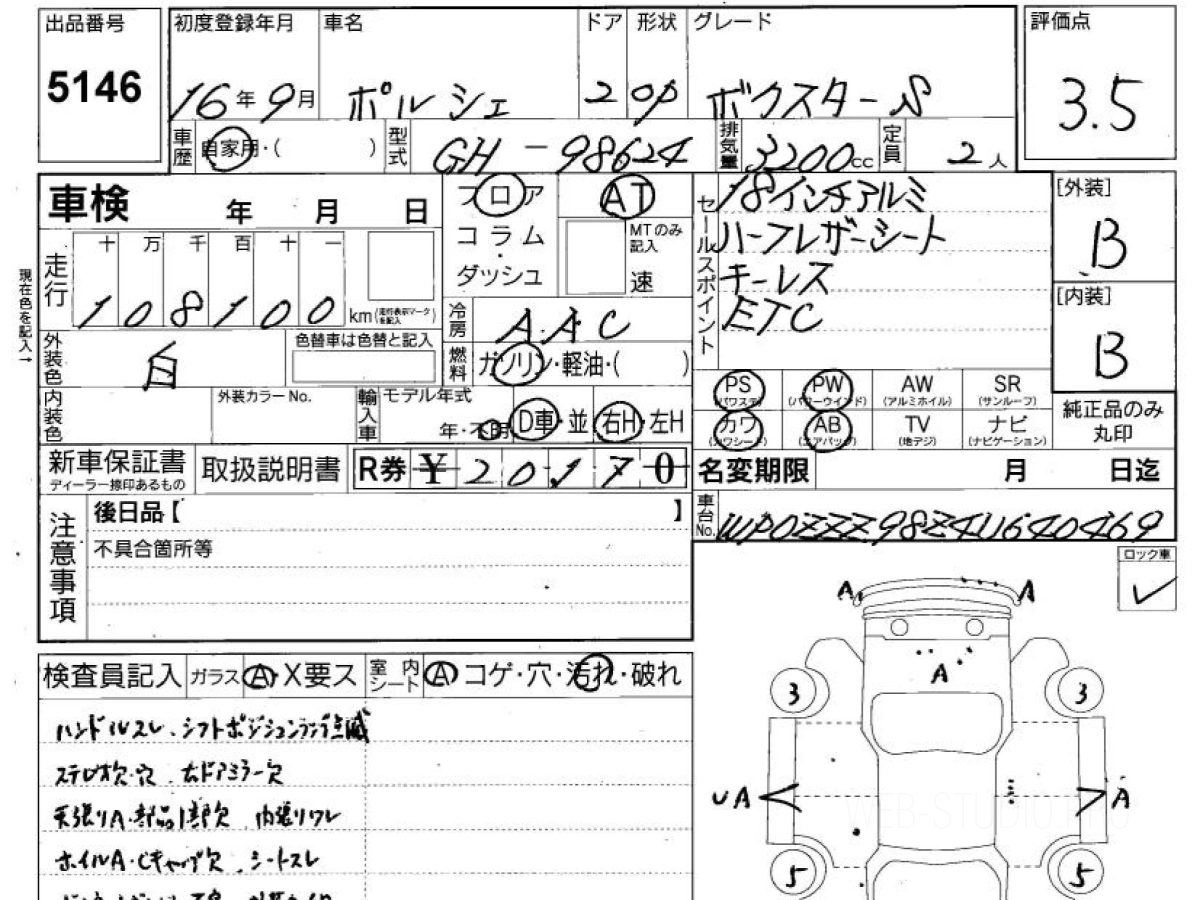 出品番号 初度登録年月 車名 ドア 形状 グレード 評価点
5146 16年9月 ポルシェ 2 OP ボクスターS 3.5
車歴 自家用・( ) 型式 GH-98624 排気量 3200cc 定員 2人
車検 年 月 日
フロア AT
コラム MTのみ記入
・
ダッシュ 速
セールスポイント
18インチアルミ
ハーフレザーシート
キーレス
ETC
[外装]
B
[内装]
B
現在色を記入→
走行 十 万 千 百 十 一
108100 km(走行表示マークを記入)
冷房 AAC
外装色 白 色替車は色替と記入
燃料 ガソリン・軽油・( )
PS PW AW SR
(パワステ) (パワーウインド) (アルミホイル) (サンルーフ)
カワ AB TV ナビ
(カワシート) (エアバッグ) (地デジ) (ナビゲーション)
純正品のみ
丸印
内装色 外装カラーNo. 輸入車 モデル年式
年・不明 D車・並 右H・左H
新車保証書 取扱説明書 R券 ¥ 20,170 名変期限 月 日迄
ディーラー捺印あるもの
車台No. WP0ZZZ98Z4U640469
注意事項
後日品【 】
不具合箇所等
ロック車
✓
検査員記入 ガラス A・X要ス 室内シート A コゲ・穴・汚れ・破れ
ハンドルスレ、シフトポジションランプ点滅
ステレオ欠・穴 右ドアミラー欠
天張りA・部品1部欠 内張りワレ
ホイルA・Cキャップ欠、シートスレ
A A
A
3 3
UA A
5 5
WEB-STUDIO.PRO